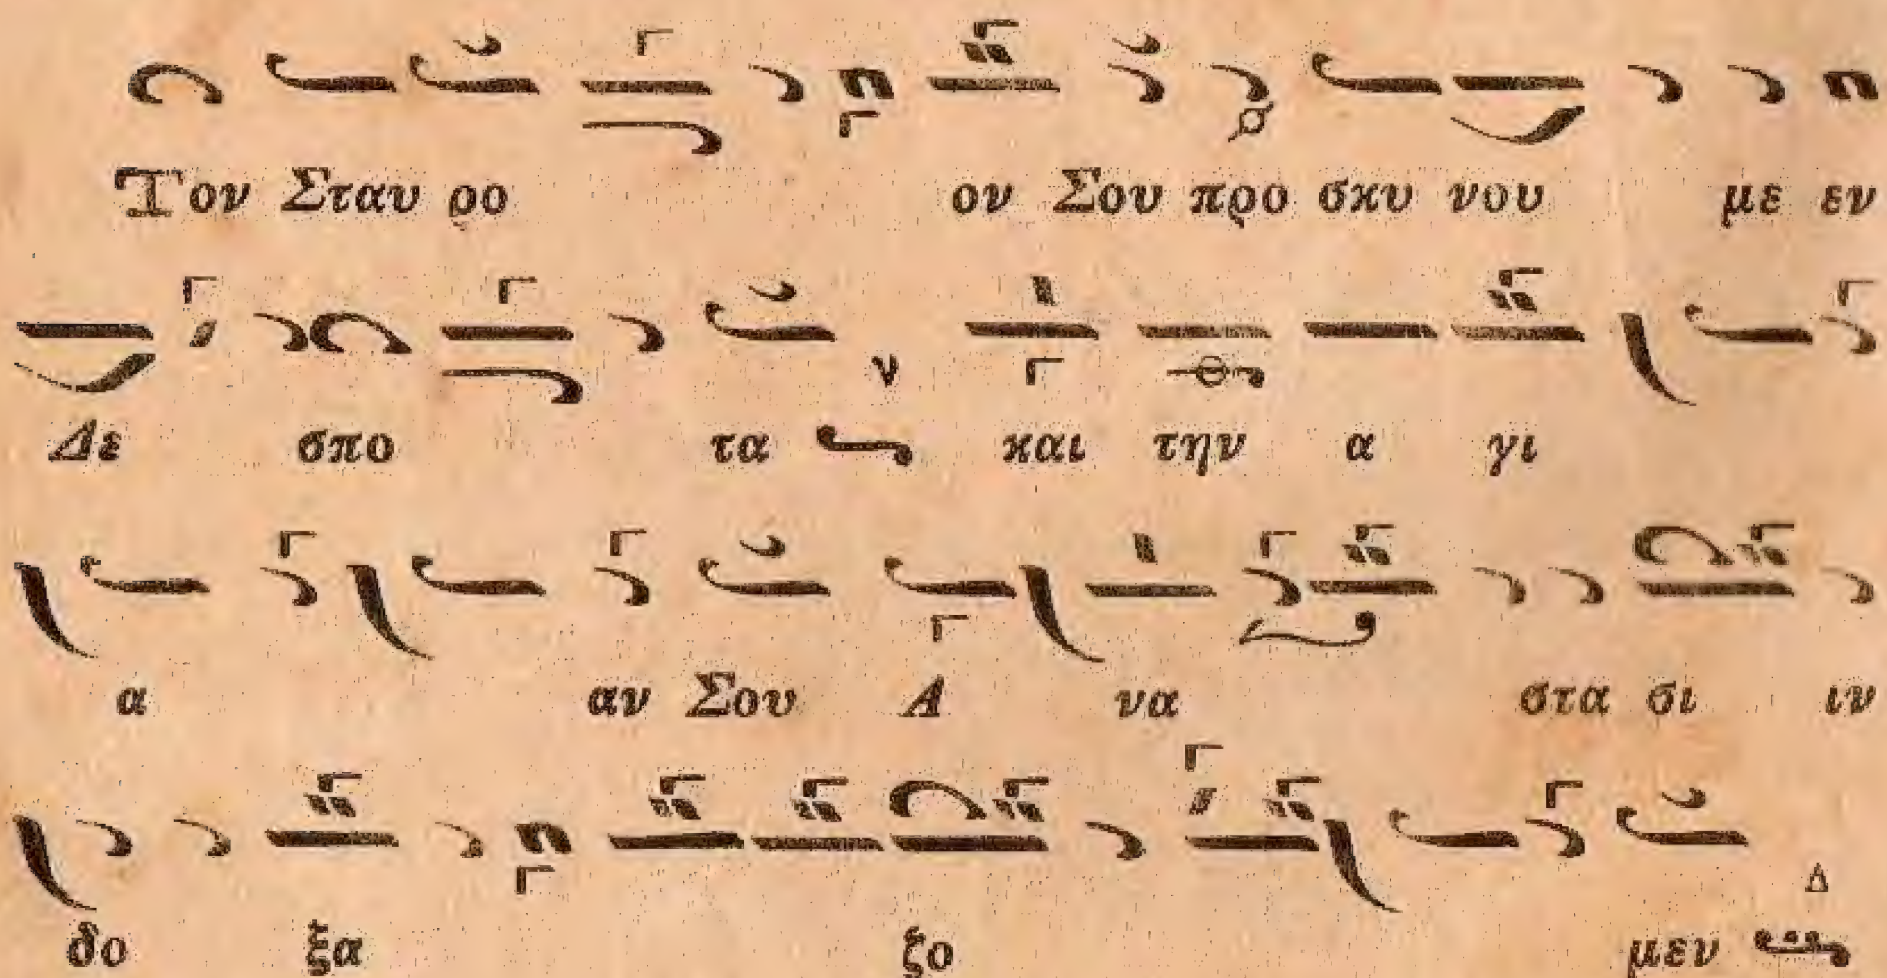 Τον Σταυ ρο ον Σου προ σκυ νου με εν
Δε σπο τα ν και την α γι
α αν Σου Α να στα σι ιν
δο ξα ζο μεν Δ